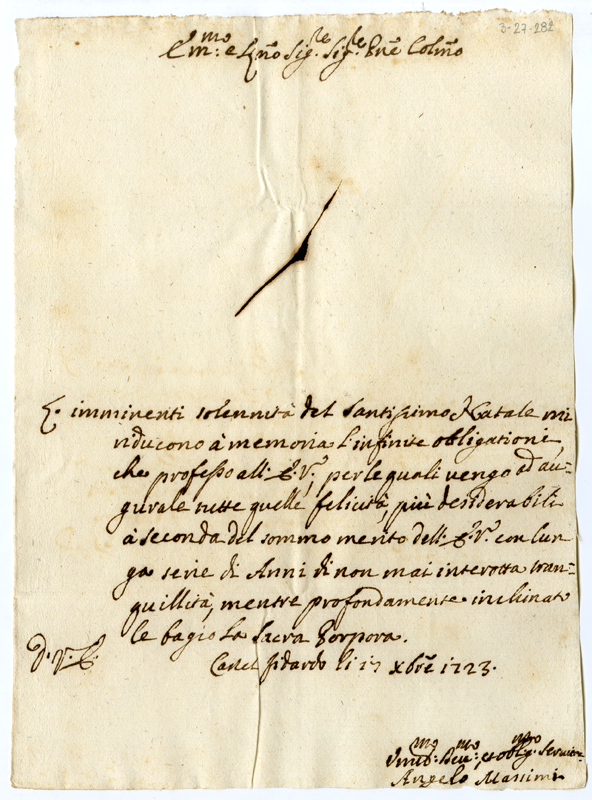 3-27-282
Em:mo e Rño Sig:re Sig:re Pñe Colmo
L'imminenti solennità del Santissimo Natale mi
riducono à memoria l'infinite obligationi,
che professo all: E:Vª, per le quali vengo ad au=
gurale tutte quelle felicità, più desiderabili
à seconda del sommo merito dell: E:Vª con lun
ga serie di Anni di non mai interotta tran=
quillità, mentre profondamente inclinato
le bagio la Sacra Porpora.
D. V. E.
Castel fidardo li 17 Xbrẽ 1723.
Umil:mo Deu:mo, et obblig:mo Servitor
Angelo Massimi